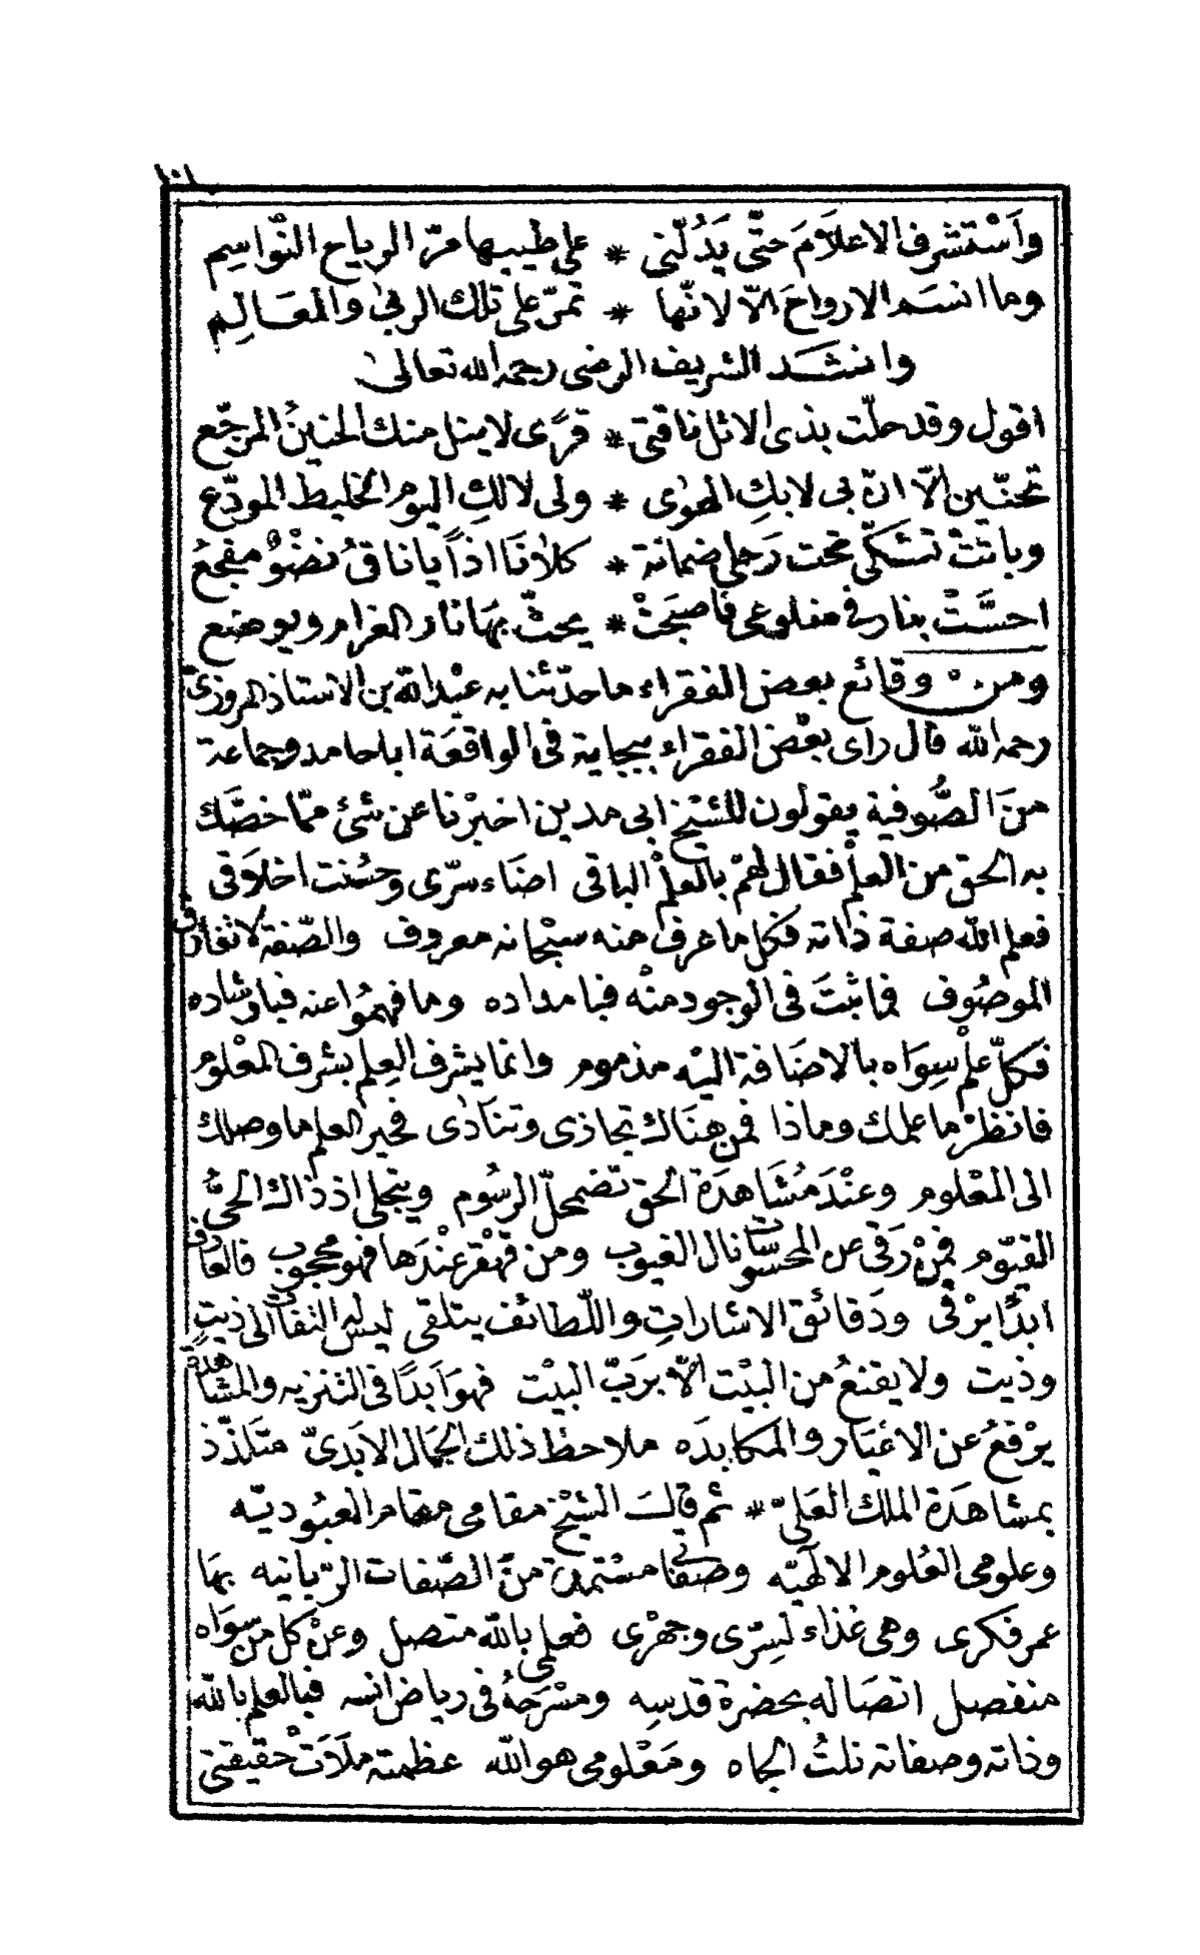 ١٠١
وَاَسْتشرف الاعلاَمَ حتّى يَدُلّنى * على طيبها مرّ الرياح النّواسِم
وما انسَم الارواحَ الّا لانّها * تمرّ على تلك الربى والمعَالِم
وانشَد الشريف الرضى رحمه الله تعالى
اقول وقد حلّت بذى الاثل ناقتى * قرًى لا ينل منك الحنينُ المرجّع
تحنّين الّا انّ بى لا بكِ الهوٰى * ولى لا لكِ اليوم الخليط المودّع
وباتتْ تشكّى تحت رَحلى ضمانة * كلاَنا اذاً يا ناقُ نضْوٌ مفجعُ
احسَّتْ بنار فى ضلوعى فاصبَحَتْ * يخثّ بهَا نار الغرام ويوضع
ومن وقائع بعض الفقراء ما حدّثنا به عبْد الله بن الاستاذ المروزىّ
رحمه الله قال راى بعْض الفقراء ببجاية فى الواقعَة ابا حامد وجماعة
منَ الصُّوفية يقولون للشيْخ ابى مدين اخبرْنا عن شئ ممّا خصَّك
به الحق من العلْم فقال لهمْ بالعلْم الباقى اضَاء سرّى وحسُنت اخلاَقى
فعلم الله صفة ذاته فكل ما عرف منه سبْحانه معروف والصّفة لا تفارق
الموصُوف فما ثبتَ فى الوجود منْه فبامداده وما فهمُوا عنه فبارشاده
فكلّ علْم سِوَاه بالاضَافة اليْه مذموم وانما يشرف العِلم بشرف المعْلوم
فانظرْ ما علمك وماذا فمن هنَاك تجازى وتنَادى فخير العلم ما وصلك
الى المعْلوم وعنْدَ مُشَاهدَة الحق تضمحلّ الرسُوم ويتجلى اذ ذاك الحىُّ
القيّوم فمنْ رَقى عن المحسُوسات نال الغيوب ومن قهْقر عنْدَها فهو محجوب فالعارف
ابدًا يرْقى ودَقائق الاشاراتِ واللّطائف يتلقى ليس له التفات الى ذيت
وذيت ولا يقنعُ من البيْت الّا برَبّ البيْت فهوَ اَبدًا فى التنزيه والمشاهدة
يرْفعُ عن الاغيَار والمكابدَه ملاحظ ذلك الجمال الاَبدىّ متَلذّذ
بمشاهدَة الملك العَلىّ * ثم قالَ الشيْخ مقامى مقام العبُوديّه
وعلومى العُلوم الالٰهيّه وصفاتى مسْتمدة منَ الصّفات الرّبانيه بهَا
عمر فكرى وهى غذاء لسِرّى وجهْرى فعلمى بالله متصل وعنْ كل من سوَاه
منفصل اتصَاله بحضرة قدسِه ومسْرَحهُ فى رياض انسه فبالعلم بالله
وذاته وصفاته نلتُ الجاه ومَعْلومى هو الله عظمته ملَاَتْ حقيقتى